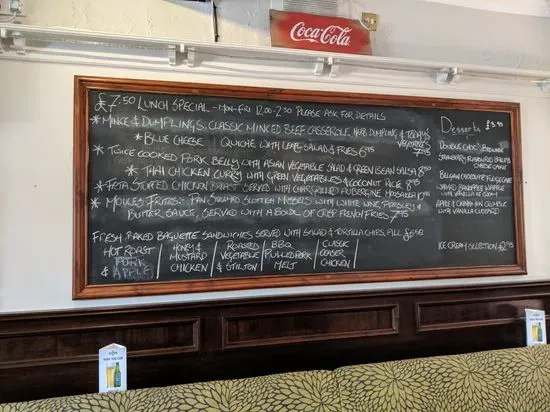 Coca-Cola
£7.50 LUNCH SPECIAL - MON-FRI 12.00-2.30 PLEASE ASK FOR DETAILS
* MINCE & DUMPLINGS. CLASSIC MINCED BEEF CASSEROLE, HERB DUMPLING, & TODAY'S VEGETABLES 7.95
* BLUE CHEESE QUICHE WITH LEAFY SALAD & FRIES 6.95
* TWICE COOKED PORK BELLY WITH ASIAN VEGETABLE SALAD & GREEN BEAN SALSA 8.95
* THAI CHICKEN CURRY WITH GREEN VEGETABLES & COCONUT RICE
* FETA STUFFED CHICKEN BREAST SERVED WITH CHARGRILLED AUBERGINE
* MOULES FRITES: PAN STEAMED SCOTTISH MUSSELS WITH WHITE WINE, PARSLEY &
BUTTER SAUCE, SERVED WITH A BOWL OF CRISP FRENCH FRIES 7.95
FRESH BAKED BAGUETTE SANDWICHES, SERVED WITH SALAD & TORTILLA CHIPS, ALL £6.50
HOT ROAST PORK & APPLE
HONEY & MUSTARD CHICKEN
ROASTED VEGETABLE & STILTON
BBQ PULLED PORK MELT
CLASSIC CAESER CHICKEN
Desserts £3.95
DOUBLE CHOC' BROWNIE
STRAWBERRY
CHEESE CAKE
BELGIAN CHOCOLATE FUDGECAKE
BANOFFEE WAFFLE
WITH VANILLA ICE CREAM
APPLE & CINNAMON CRUMBLE
WITH VANILLA CUSTARD
ICE CREAM SELECTION £2.95